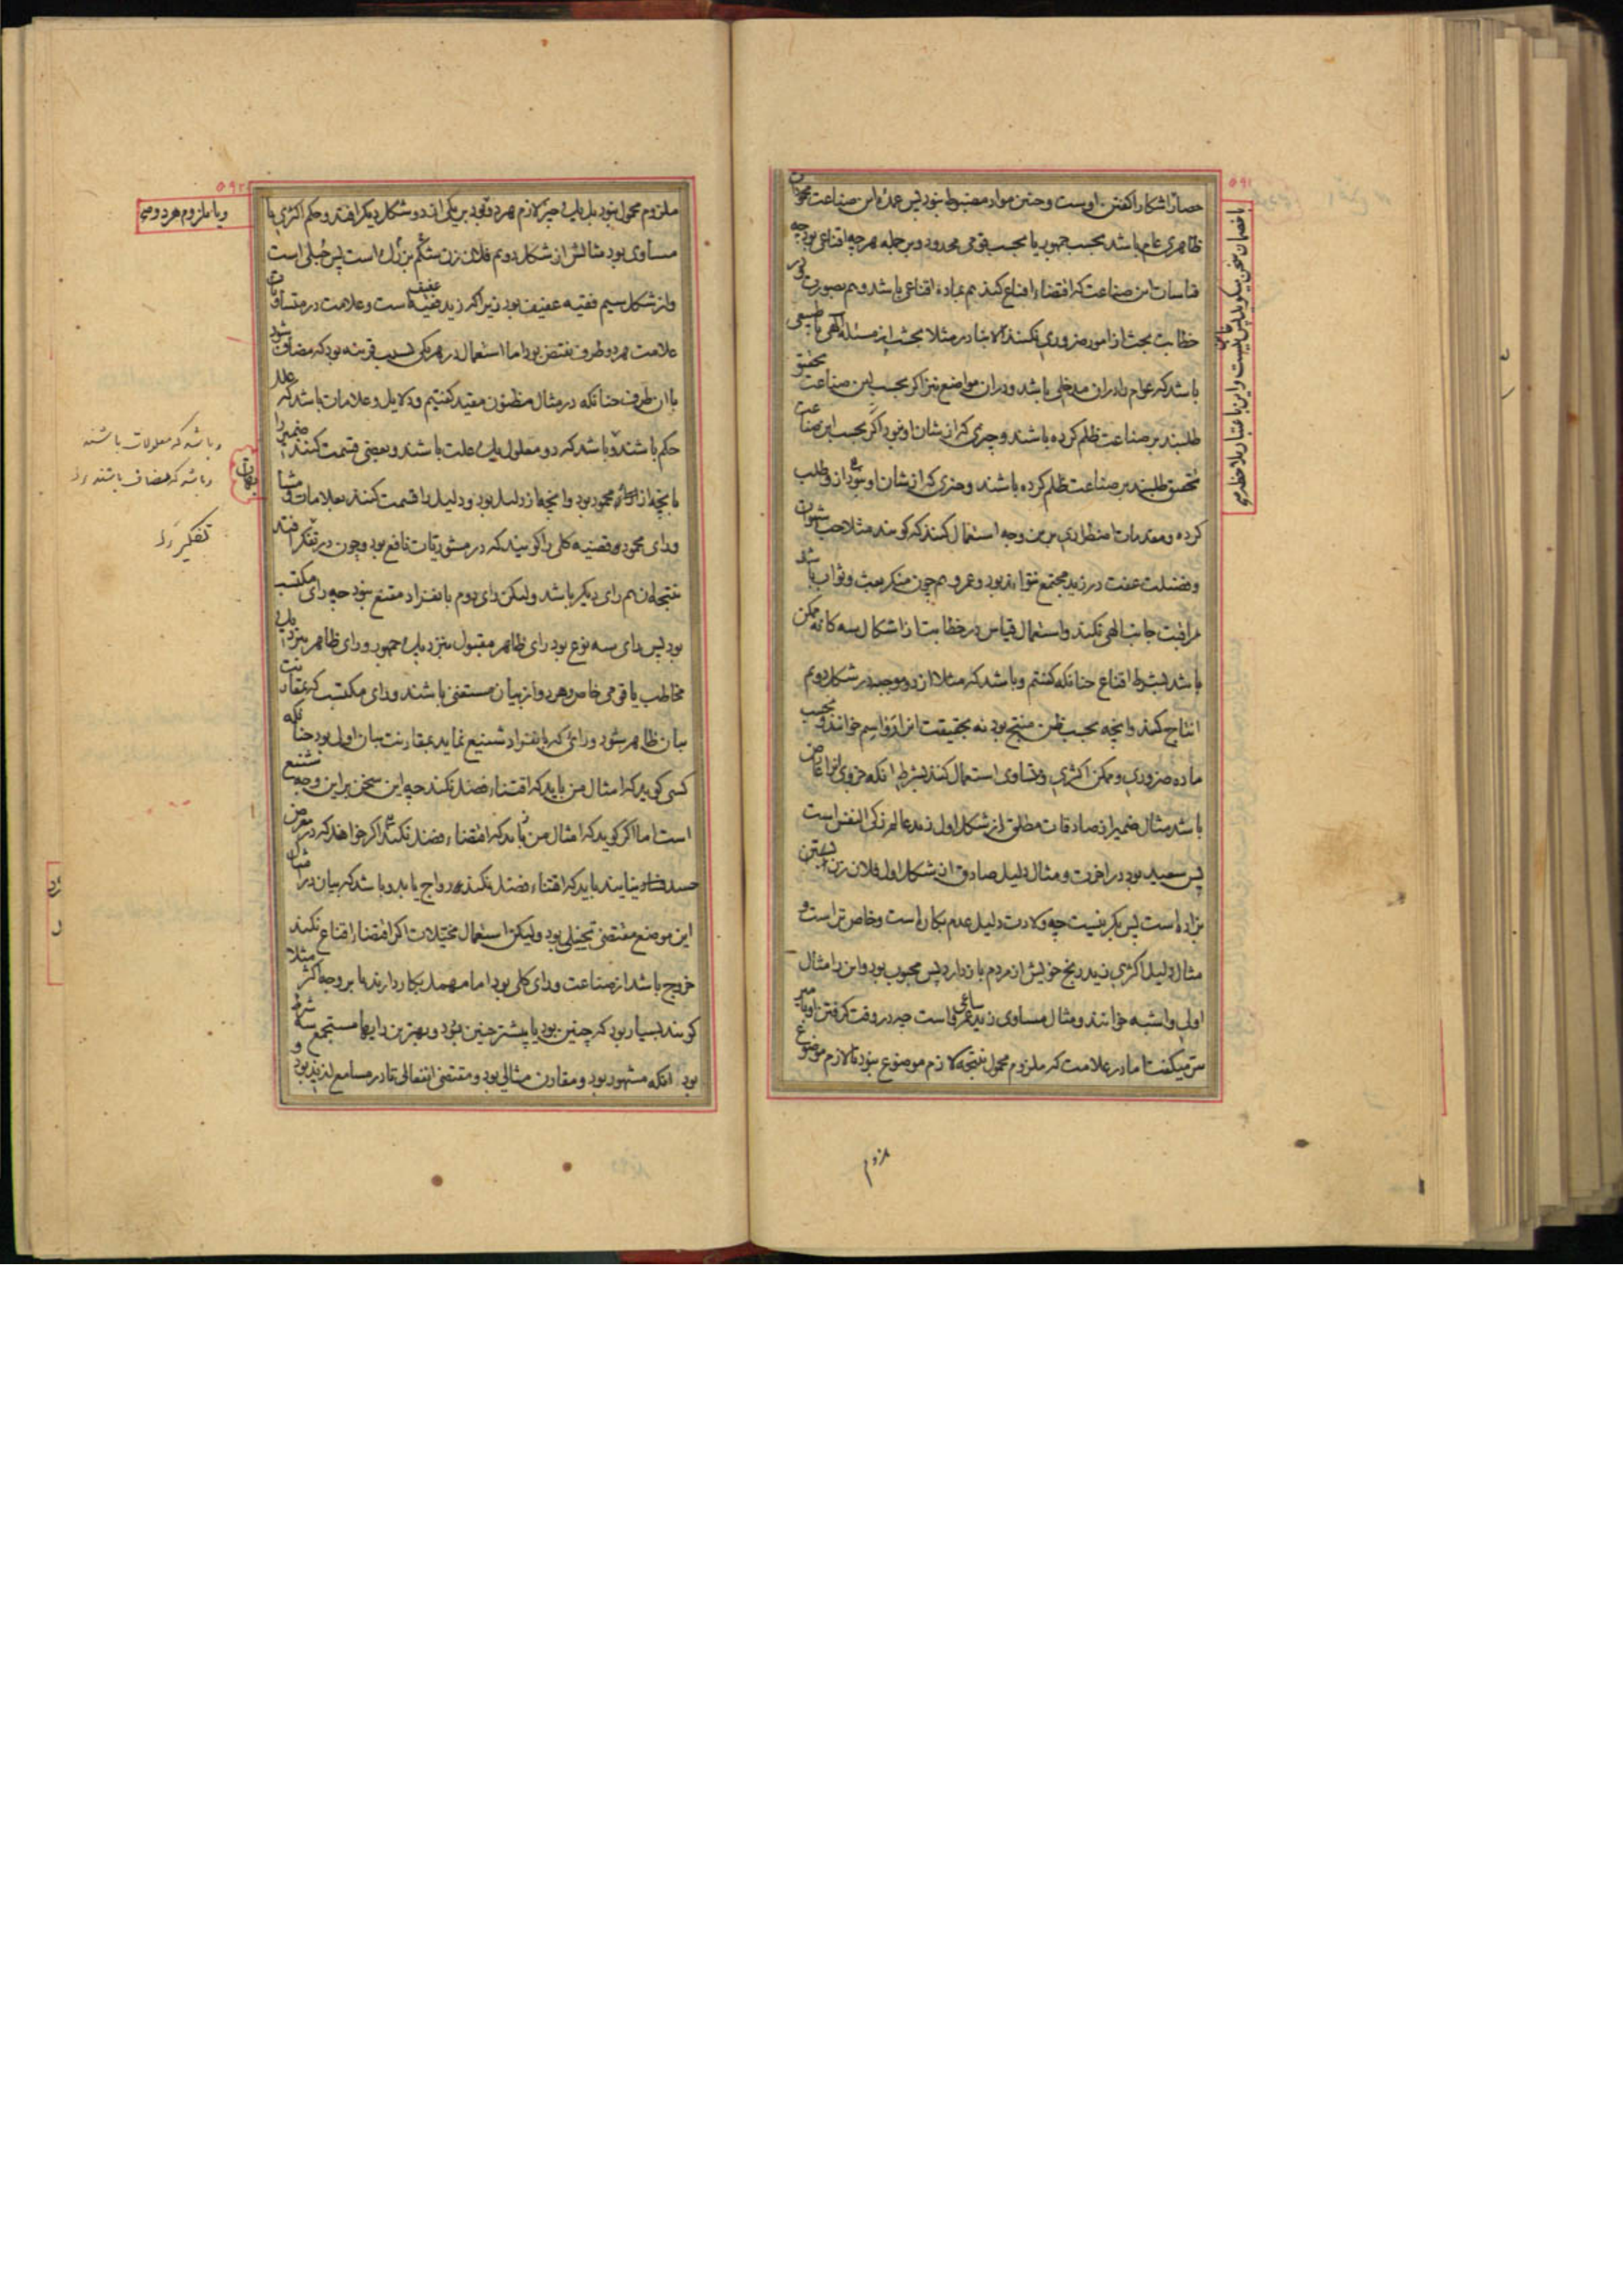 ۵۹۱
ظاهری عام باشد بحسب جمهور یا بحسب قومی محدود و بر جمله هرچه اقناعی بود چه
قیاسات این صناعت که اقتضاء اقناع کند هم بماده اقناعی باشد و هم بصورت و در
خطابت بحث از امور ضروری نکنند الا نادر مثلا بحث از مسئله الهی یا طبیعی
باشد که عوام را در ان مدخلی باشد و در ان مواضع نیز اگر بحسب این صناعت تحقیق
طلبند بر صناعت ظلم کرده باشند و چیزی که از شان او نبود اگر بحسب این صناعت
تحقیق طلبند بر صناعت ظلم کرده باشند و چیزی که از شان او نبود از و طلب
کرده و مقدمات اضطراری برین وجه استعمال کنند که گویند مثلا حب شهوات
و فضیلت عفت در زید مجتمع نتواند بود و عمرو هم چون منکر بعث و ثواب باشد
مراقبت جانب الهی نکند و استعمال قیاس در خطابت از اشکال سه کانه ممکن
باشد بشرط اقناع چنانکه گفتیم و باشد که مثلا از دو موجبه در شکل دویم
انتاج کنند و انچه بحسب ظن منتج بود نه بحقیقت انرا رواسم خوانند و بحسب
ماده ضروری و ممکن اکثری و متساوی استعمال کنند بشرط انکه
باشد مثال ضمیر از صادقات مطلق از شکل اول زید عالم زکی النفس است
پس سعید بود در اخرت و مثال دلیل صادق از شکل اول فلان زن ابستن
بزاده است پس بکر نیست چه ولادت دلیل عدم بکارتست و خاص تر است و
مثال دلیل اکثری زید رنج خویش از مردم باز دارد پس محبوب بود و این را مثال
اولی و اشبه خوانند و مثال مساوی زید ساعی عمرو است چه در وقت گرفتن او با امیر
سر میگفت اما در علامت که ملزوم محمول نتیجه لازم موضوع نبود تا لازم موضوع
ملزوم
۵۹۲
و یا ملزوم هر دو
ملزوم محمول نبود بل یا چیز لازم هر دو بود بر یکی از دو شکل دیگر افتد و حکم اکثری یا
مساوی بود مثالش از شکل دویم فلان زن شکم بزرگ است پس حبلی است
و از شکل سیم فقیه عفیف بود زیرا که زید فقیه عفیف است و علامت در متساویات
علامت هر دو طرف نقیض بود اما استعمال در هر یکی بسبب قرینه بود که مضاف شود
با ان طرف چنانکه در مثال مظنون مقید گفتیم و دلایل و علامات باشد که علل
حکم باشند و باشد که دو معلول یک علت باشند و بعضی قسمت کنند ضمیر را
و باشد که معلولات باشند
و باشد که مضاف باشند
بانچه از رای محمود بود و انچه از دلیل بود و دلیل را قسمت کنند بعلامات و
و رای محموده قضیه کلی را گویند که در مشوریات نافع بود و چون در تفکر افتد
تفکیر
نتیجه ان هم رای دیگر باشد و لیکن رای دوم بانفراد مقنع نبود چه رای مکتسب
بود پس رای سه نوع بود رای ظاهر مقبول بنزدیک جمهور و رای ظاهر بنزدیک
مخاطب یا قومی خاص و هر دو از بیان مستغنی باشند و رای مکتسب که بمقارنت
بیان ظاهر شود و رائی که بانفراد شنیع نماید بمقارنت بیان اول بود چنانکه
کسی گوید که امثال من باید که اقتناء فضل نکند چه این سخن بر این وجه شنیع
است اما اگر گوید که امثال من باید که اقتضاء فضل نکند اگر خواهد که در معرض
حسد نیایند باید که اقتناء فضل نکند رواج یابد و باشد که بیان در امثال
این موضع مقتضی تخییلی بود و لیکن استعمال مخیلات اگر اقتضا اقناع نکند
خروج باشد از صناعت و رای کلی بود اما مهمل بکار دارند یا بر وجه اکثر مثلا
گویند بسیار بود که چنین بود یا بیشتر چنین بود و بهترین رایها مستجمع سه شرط
بود انکه مشهور بود و مقارن مثالی بود و مقتضی انفعالی تا در مسامع لذیذ بود و